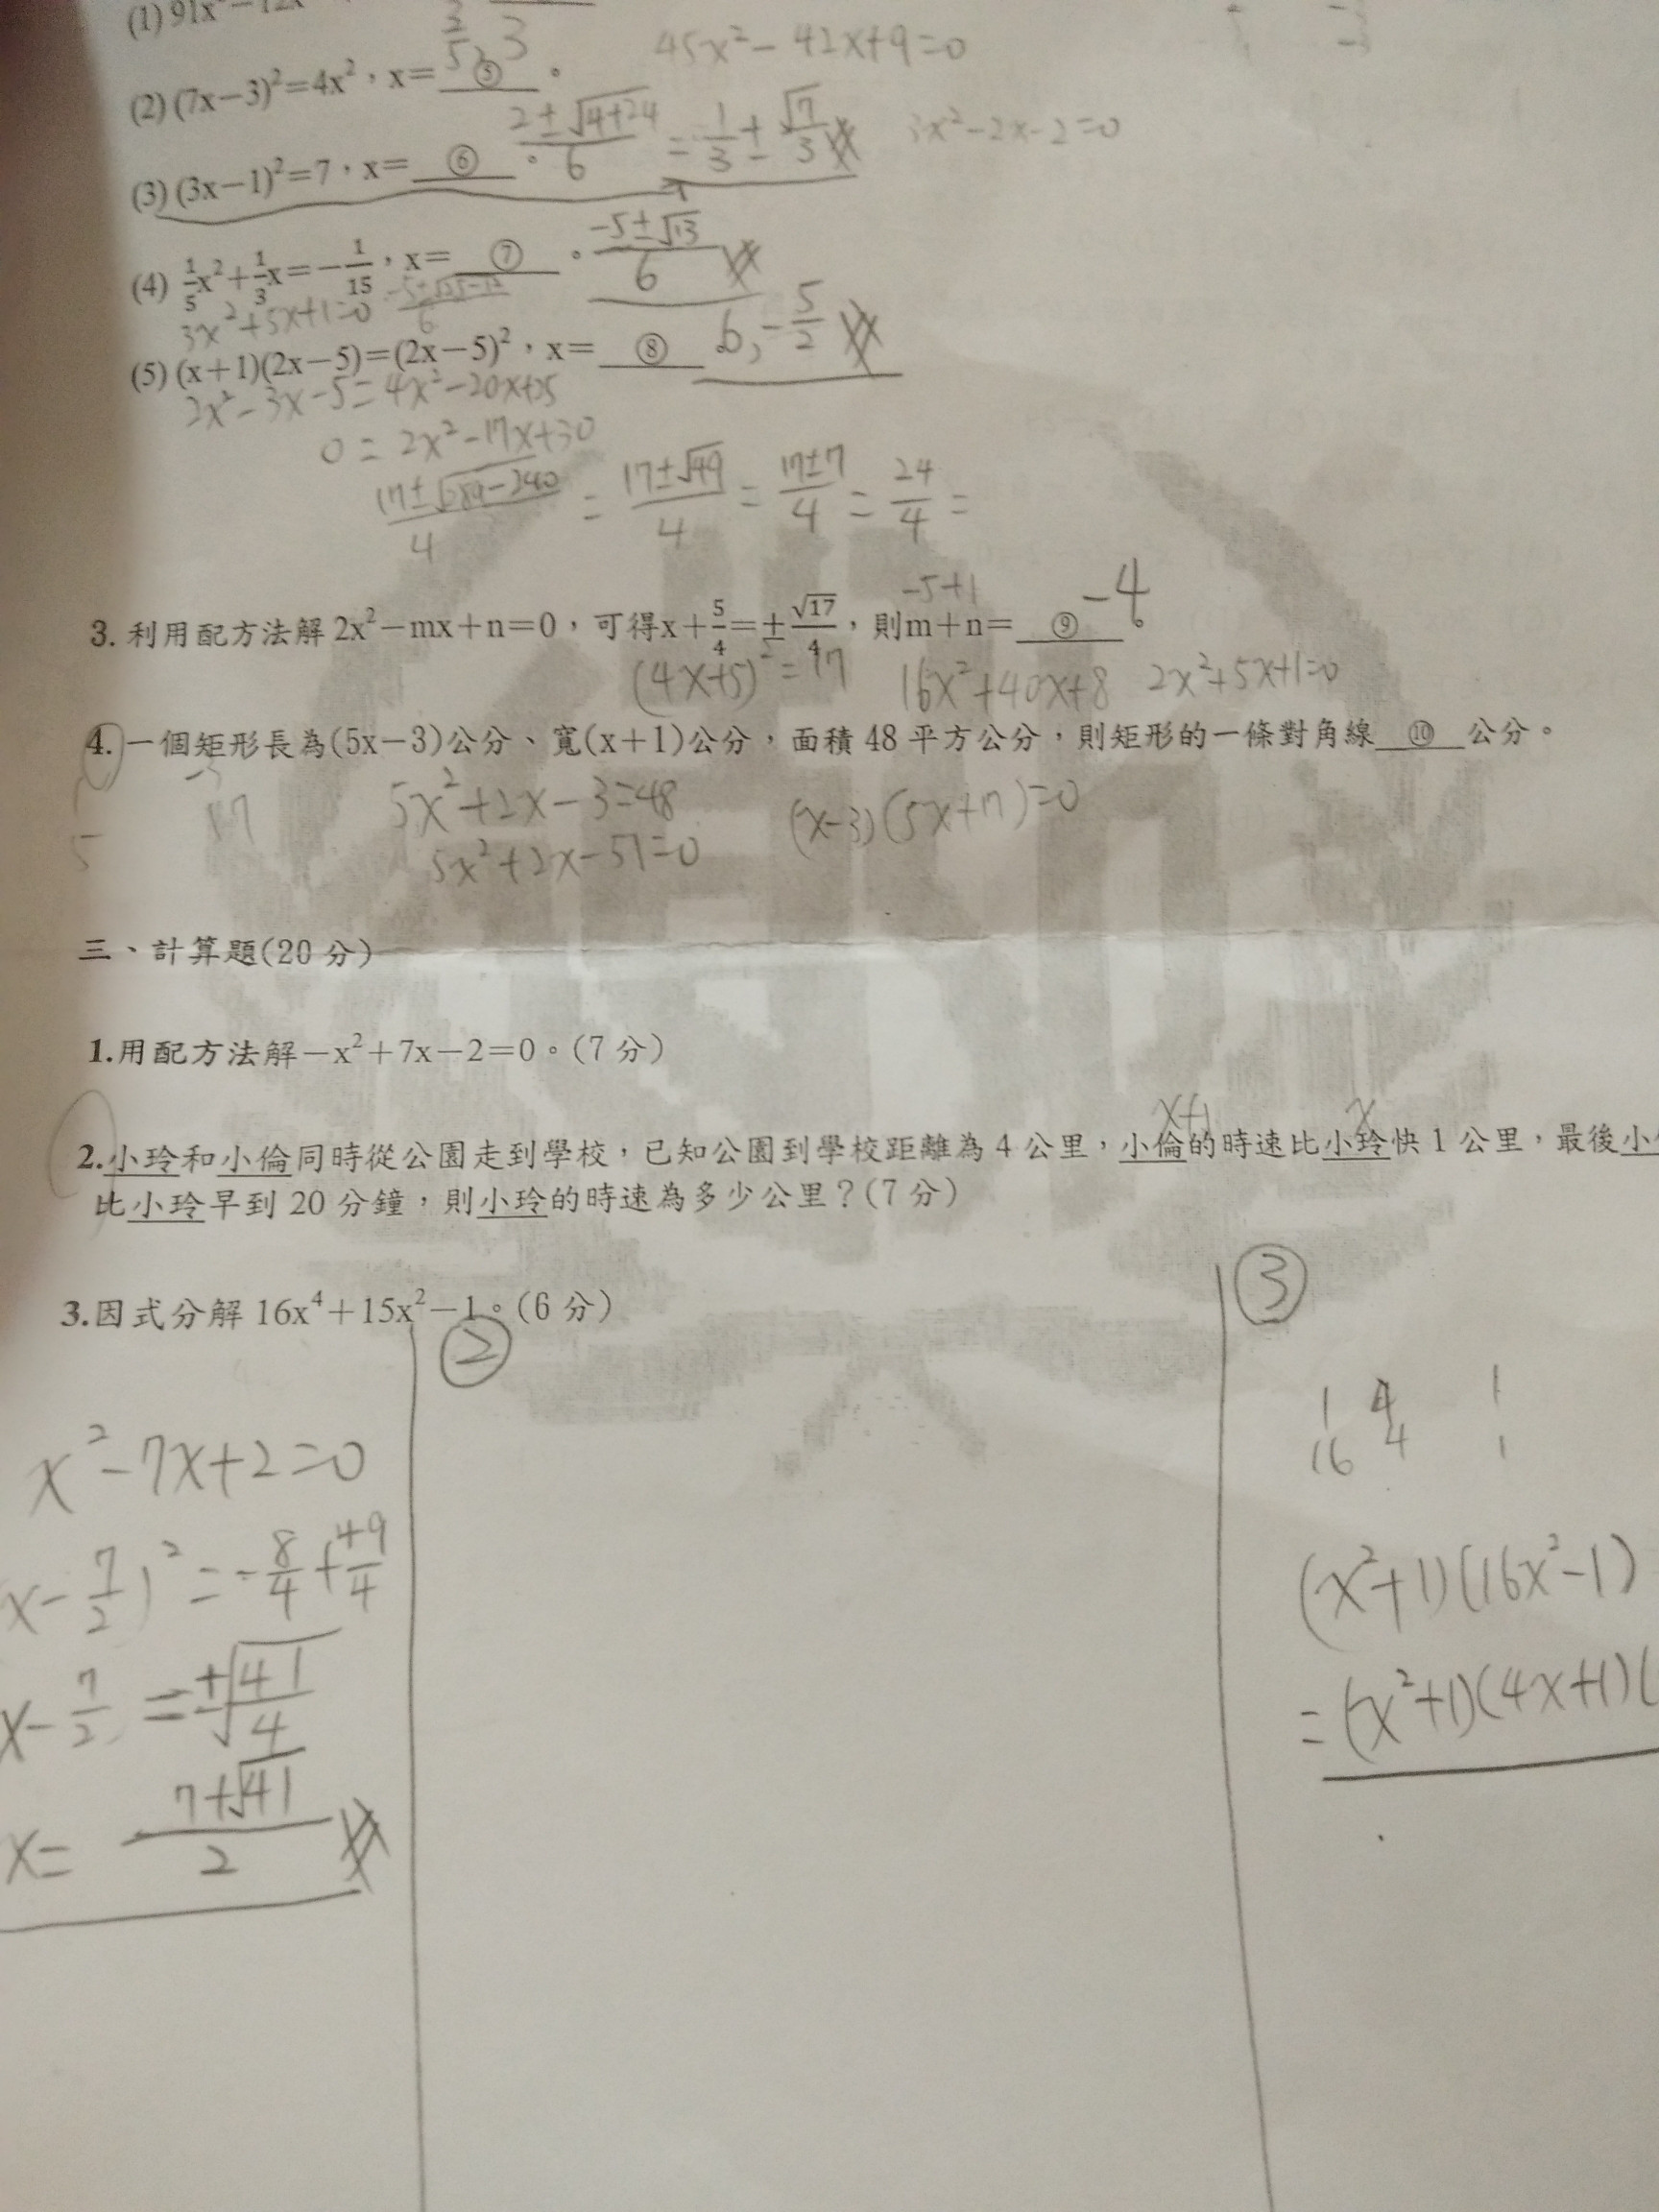 (1) 91x² − 12x
2/5, 3
45x² − 42x + 9 = 0
(2) (7x−3)²=4x²，x= ⑤ 。
(3) (3x−1)²=7，x= ⑥ 。 2±√4+24 / 6 = 1/3 ± √7/3
3x² − 2x − 2 = 0
(4) 1/5x²+1/3x=−1/15，x= ⑦ 。 −5±√13 / 6
3x²+5x+1=0
(5) (x+1)(2x−5)=(2x−5)²，x= ⑧ 6, −5/2
2x²−3x−5=4x²−20x+25
0 = 2x²−17x+30
17±√289−240 / 4 = 17±√49 / 4 = 17±7 / 4 = 24/4 =
−5+1
3. 利用配方法解 2x²−mx+n=0，可得x+5/4=±√17/4，則m+n= ⑨ 。 −4
(4x+5)²=17 16x²+40x+8 2x²+5x+1=0
4. 一個矩形長為(5x−3)公分、寬(x+1)公分，面積 48 平方公分，則矩形的一條對角線 ⑩ 公分。
5x²+2x−3=48 (x−3)(5x+17)=0
5x²+2x−51=0
三、計算題(20 分)
1.用配方法解−x²+7x−2=0。(7 分)
x+1 x
2.小玲和小倫同時從公園走到學校，已知公園到學校距離為 4 公里，小倫的時速比小玲快 1 公里，最後小
比小玲早到 20 分鐘，則小玲的時速為多少公里？(7 分)
3.因式分解 16x⁴+15x²−1。(6 分)
x²−7x+2=0
x−7/2)²=−8/4+49/4
x−7/2=±√41/4
x= 7+√41 / 2
②
③
1 4 1
16 4 1
(x²+1)(16x²−1)
=(x²+1)(4x+1)(